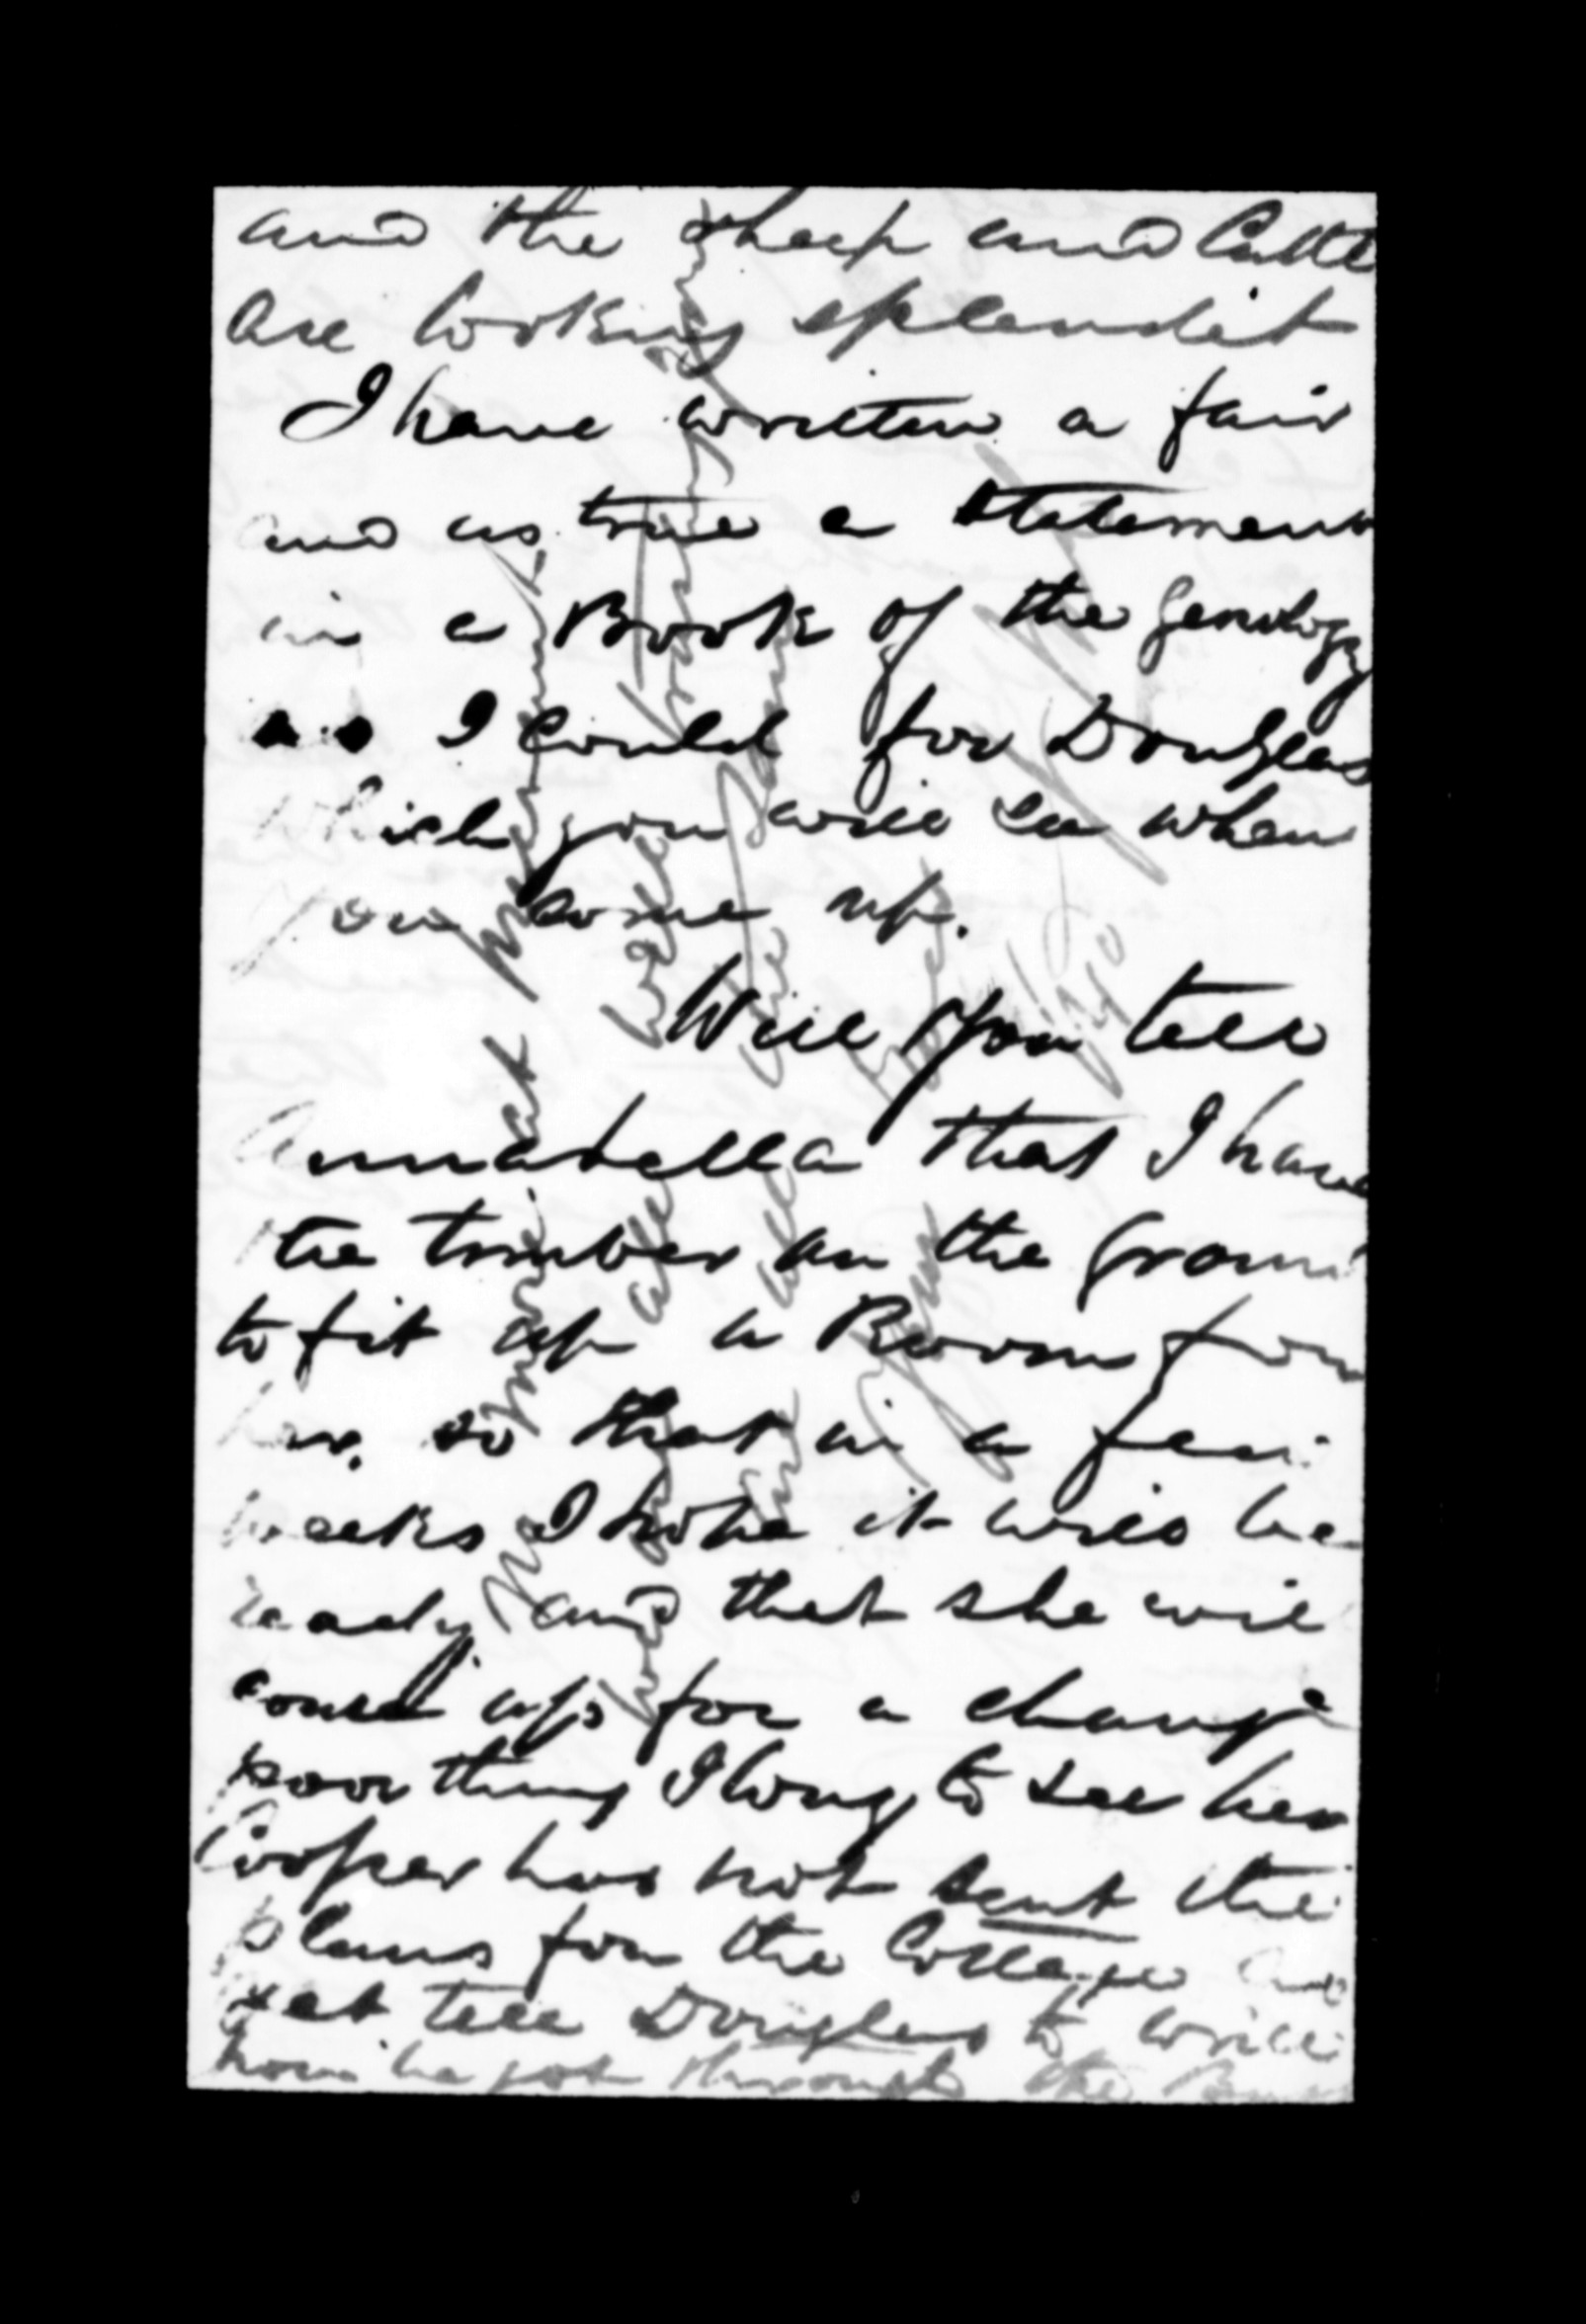 and the sheep and Cattle
are looking splendit
I have written a fair
and as true a statement
in a Book of the Genology
as I Could for Douglas
which you will see when
you come up.
Will you tell
Annabella that I have
the timber on the Ground
to fit up a Room for
her. so that in a few
weeks I hope it will be
ready and that she will
come up for a change
poor thing I long to see her
Cooper has not sent the
plans for the Cottage
yet tell Douglas to write
how he got through the
No more at present
hoping all
are all
Your